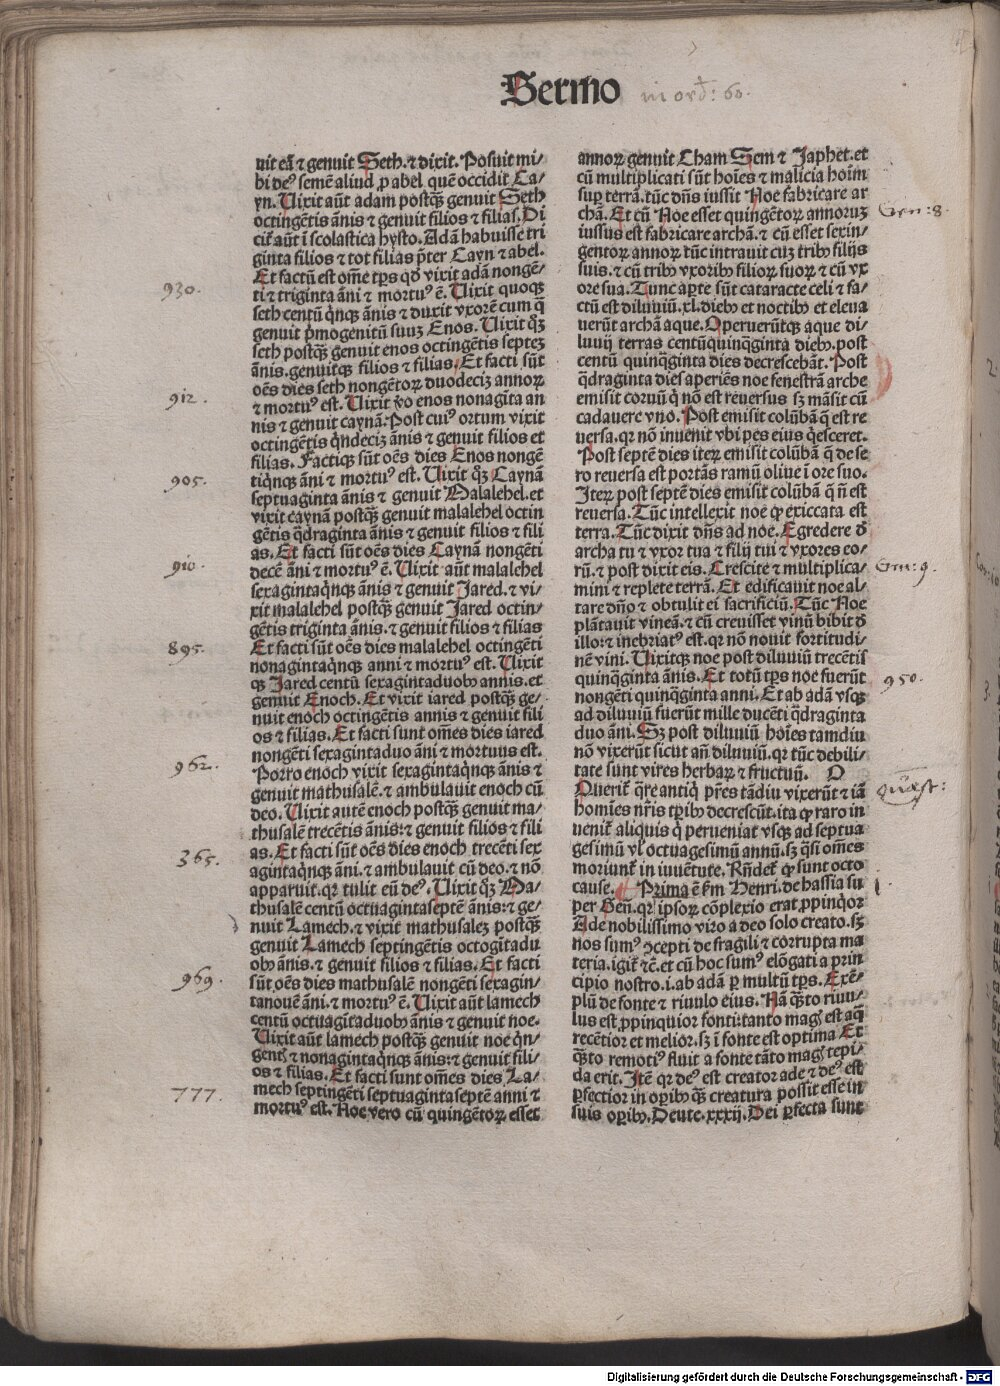 Sermo
in ord: 60.
uit eã ⁊ genuit Seth. ⁊ dixit. Posuit mi/
hi deꝰ semē aliud ꝓ abel quē occidit Ca/
yn. Uixit aūt adam postq̃ꝫ genuit Seth
octingētis ãnis ⁊ genuit filios ⁊ filias. Di
cit̃ aūt ĩ scolastica hysto. Adã habuisse tri
ginta filios ⁊ tot filias p̃ter Cayn ⁊ abel.
Et factū est om̄e tꝑs qd̕ vixit adã nongē/
ti ⁊ triginta ãni ⁊ mortuꝰ ē. Uixit quoqꝫ
seth centū q̃nqꝫ ãnis ⁊ duxit vxorē cum q̃
genuit p̃mogenitū suuꝫ Enos. Uixit qꝫ
seth postq̃ꝫ genuit enos octingētis septeꝫ
ãnis. genuitqꝫ filios ⁊ filias. Et facti sūt
oēs dies seth nongētoꝝ duodeciꝫ annoꝝ
⁊ mortuꝰ est. Uixit ṽo enos nonaginta an
nis ⁊ genuit caynã. Post cuiꝰ ortum vixit
octingētis q̃ndeciꝫ ãnis ⁊ genuit filios et
filias. Factiqꝫ sūt oēs dies Enos nongē
tiq̃nqꝫ ãni ⁊ mortuꝰ est. Uixit qꝫ Caynã
septuaginta ãnis ⁊ genuit Malalehel. et
vixit caynã postq̃ꝫ genuit malalehel octin
gētis q̃draginta ãnis ⁊ genuit filios ⁊ fili
as. Et facti sūt oēs dies Caynã nongēti
decē ãni ⁊ mortuꝰ ē. Uixit aūt malalehel
sexagintaq̃nqꝫ ãnis ⁊ genuit Jared. ⁊ vi/
xit malalehel postq̃ꝫ genuit Jared octin/
gētis triginta ãnis. ⁊ genuit filios ⁊ filias
Et facti sūt oēs dies malalehel octingēti
nonagintaq̃nqꝫ anni ⁊ mortuꝰ est. Uixit
qꝫ Jared centū sexagintaduobꝫ annis. et
genuit Enoch. Et vixit iared postq̃ꝫ ge/
nuit enoch octingētis annis ⁊ genuit fili
os ⁊ filias. Et facti sunt om̄es dies iared
nongēti sexagintaduo ãni ⁊ mortuus est.
Porro enoch vixit sexagintaq̃nqꝫ ãnis ⁊
genuit mathusalē. ⁊ ambulauit enoch cū
deo. Uixit autē enoch postq̃ꝫ genuit ma/
thusalē trecētis ãnis: ⁊ genuit filios ⁊ fili
as. Et facti sūt oēs dies enoch trecēti sex
agintaq̃nqꝫ ãni. ⁊ ambulauit cū deo. ⁊ nõ
apparuit. qꝛ tulit eū deꝰ. Uixit qꝫ Ma/
thusalē centū octuagintaseptē ãnis: ⁊ ge/
nuit Lamech. ⁊ vixit mathusaleꝫ postq̃ꝫ
genuit Lamech septingētis octogītadu
obꝫ ãnis. ⁊ genuit filios ⁊ filias. Et facti
sūt oēs dies mathusalē nongēti sexagin/
tanouē ãni. ⁊ mortuꝰ ē. Uixit aūt lamech
centū octuagītaduobꝫ ãnis ⁊ genuit noe.
Uixit aūt lamech postq̃ꝫ genuit noe q̃n/
gent̕ ⁊ nonagintaq̃nqꝫ ãnis: ⁊ genuit fili/
os ⁊ filias. Et facti sunt om̄es dies La/
mech septingēti septuagintaseptē anni ⁊
mortuꝰ est. Noe vero cū quingētoꝝ esset
930.
912.
905.
910.
895.
962.
365.
969.
777.
annoꝝ genuit Cham Sem ⁊ Japhet. et
cū multiplicati sūt hoīes ⁊ malicia hoīm
suꝑ terrã. tūc dn̄s iussit Noe fabricare ar
chã. Et cū Noe esset quingētoꝝ annoruꝫ
iussus est fabricare archã. ⁊ cū esset sexin/
gentoꝝ annoꝝ tūc intrauit cuꝫ tribꝫ filijs
suis. ⁊ cū tribꝫ vxoribꝫ filioꝝ suoꝝ ⁊ cū vx
ore sua. Tunc aꝑte sūt cataracte celi ⁊ fa/
ctū est diluuiū. xl. diebꝫ et noctibꝫ et eleua
uerūt archã aque. Operuerūtqꝫ aque di/
luuij terras centūquinq̃ginta diebꝫ. post
centū quinq̃ginta dies decrescebãt. Post
q̃draginta dies aperiēs noe fenestrã arche
emisit coruū q̃ nõ est reuersus sꝫ mãsit cū
cadauere vno. Post emisit colūbã q̃ est re
uersa. qꝛ nõ inuenit vbi pes eius q̃esceret.
Post septē dies iteꝝ emisit colūbã q̃ de se
ro reuersa est portãs ramū oliue ĩ ore suo.
Iteꝝ post septē dies emisit colūbã q̃ ñ est
reuersa. Tūc intellexit noe ꝙ exiccata est
terra. Tūc dixit dn̄s ad noe. Egredere d̕
archa tu ⁊ vxor tua ⁊ filij tui ⁊ vxores eo/
rū. ⁊ post dixit eis. Crescite ⁊ multiplica/
mini ⁊ replete terrã. Et edificauit noe al/
tare dño ⁊ obtulit ei sacrificiū. Tūc Noe
plãtauit vineã. ⁊ cū creuisset vinū bibit d̕
illo: ⁊ inebriatꝰ est. qꝛ nõ nouit fortitudi/
nē vini. Uixitqꝫ noe post diluuiū trecētis
quinq̃ginta ãnis. Et totū tꝑs noe fuerūt
nongēti quinq̃ginta anni. Et ab adã vsqꝫ
ad diluuiū fuerūt mille ducēti q̃draginta
duo ãni. Sꝫ post diluuiū hoīes tamdiu
nõ vixerūt sicut añ diluuiū. qꝛ tūc debili/
tate sunt vires herbaꝝ ⁊ fructuū. O
Querit̃ q̃re antiq̃ pr̄es tãdiu vixerūt ⁊ iã
homīes nr̄is tꝑibꝫ decrescūt. ita ꝙ raro in
uenit̃ aliquis q̃ perueniat vsqꝫ ad septua
gesimū vl̕ octuagesimū annū. sꝫ q̃si om̄es
moriunt̃ in iuuētute. Rn̄det̃ ꝙ sunt octo
cause. Prima ē ẜm Henri. de hassia su
per Geñ. qꝛ ipsoꝝ cõplexio erat ꝓpinq̃or
Ade nobilissimo viro a deo solo creato. sꝫ
nos sumꝰ ꝯcepti de fragili ⁊ corrupta ma
teria. igit̃ ⁊ē. et cū hoc sumꝰ elõgati a prin
cipio nostro. i. ab adã ꝑ multū tꝑs. Exē/
plū de fonte ⁊ riuulo eius. Nã q̃ꝫto riuu/
lus est ꝓpinquior fonti: tanto mag̕ est aq̃
recētior et melior. sꝫ ĩ fonte est optima Et
q̃ꝫto remotiꝰ fluit a fonte tãto mag̕ tepi/
da erit. Itē qꝛ deꝰ est creator ade ⁊ deꝰ est
ꝑfectior in oꝑibꝫ q̃ꝫ creatura possit esse in
suis oꝑibꝫ. Deute. xxxij. Dei ꝑfecta sunt
Gen: 8.
Gen: 9.
950.
Quæst:
1.
Digitalisierung gefördert durch die Deutsche Forschungsgemeinschaft - DFG